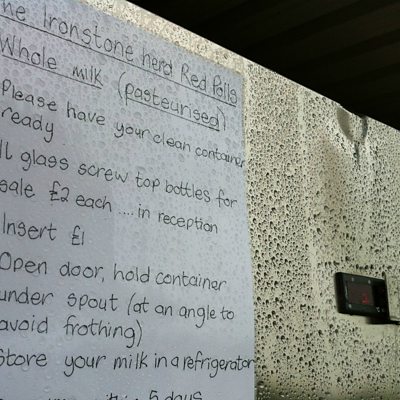 he Ironstone herd Red Polls
Whole milk (pasteurised)
Please have your clean container
ready
ll glass screw top bottles for
sale £2 each .... in reception
Insert £1
Open door, hold container
under spout (at an angle to
avoid frothing)
Store your milk in a refrigerator
5 days